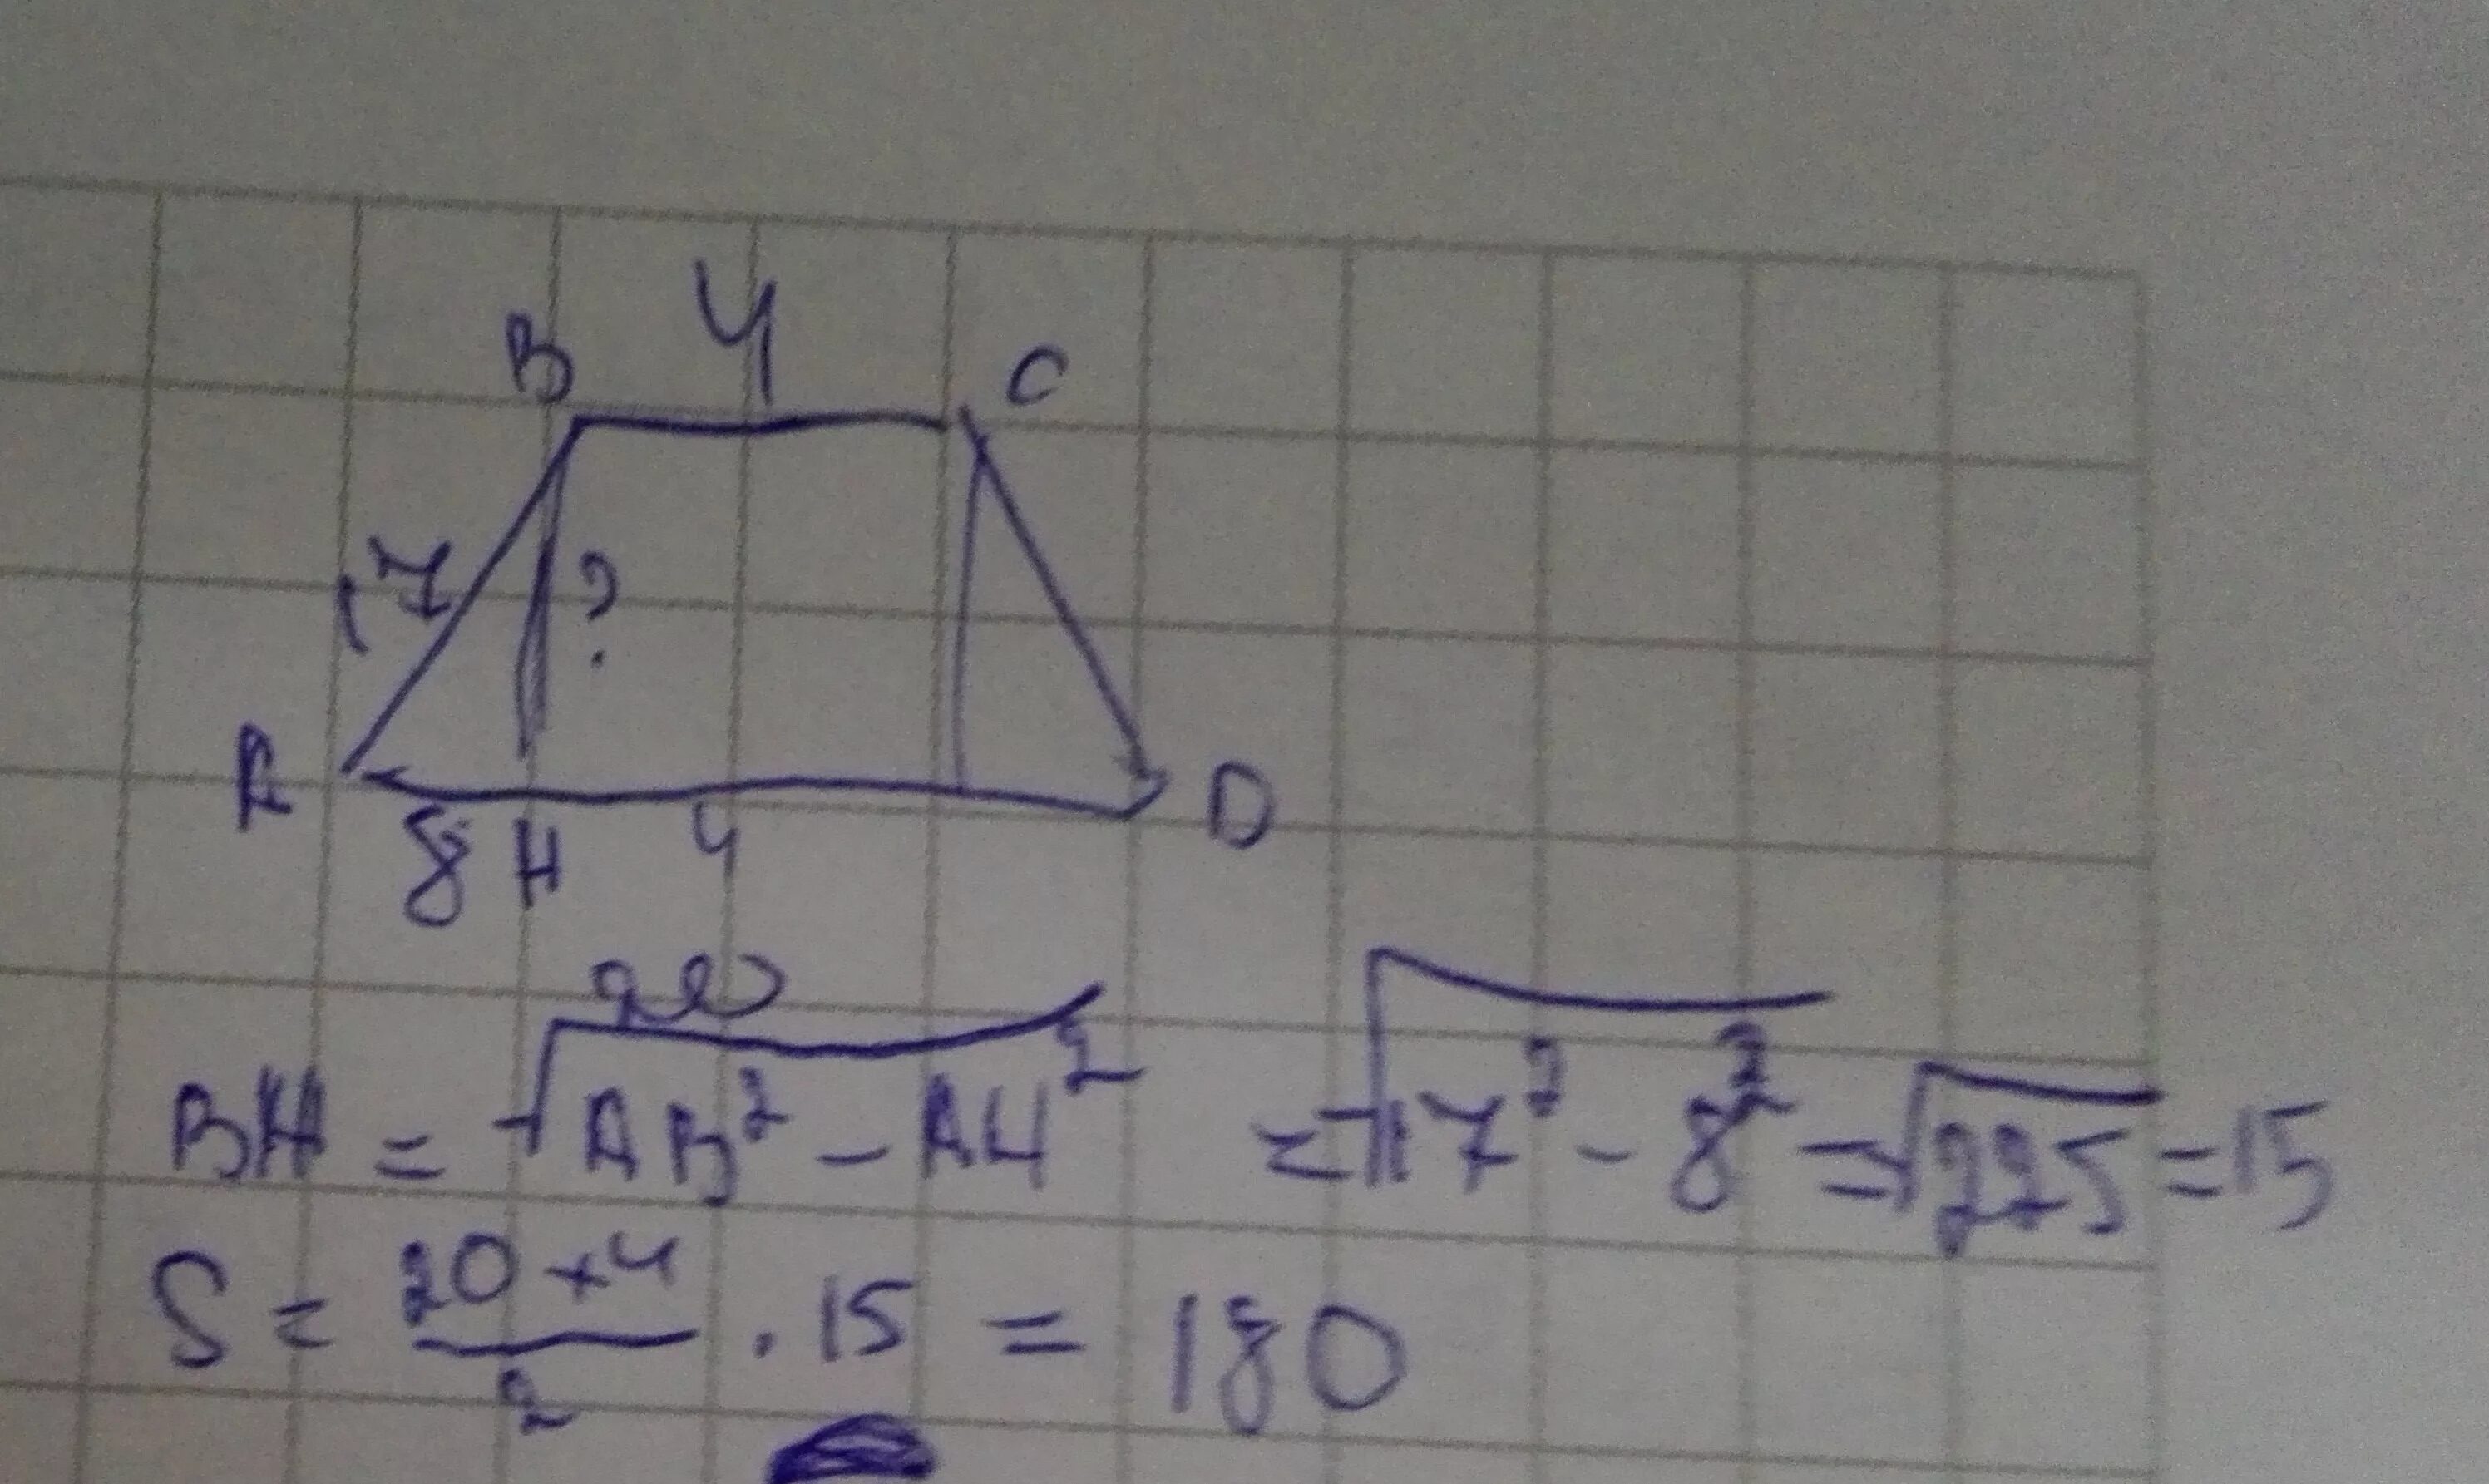 B 4 C
17 ?
A D
8 H 4
20
BH = √AB² - AH² = √17² - 8² = √225 = 15
S = 20 + 4 / 2 · 15 = 180